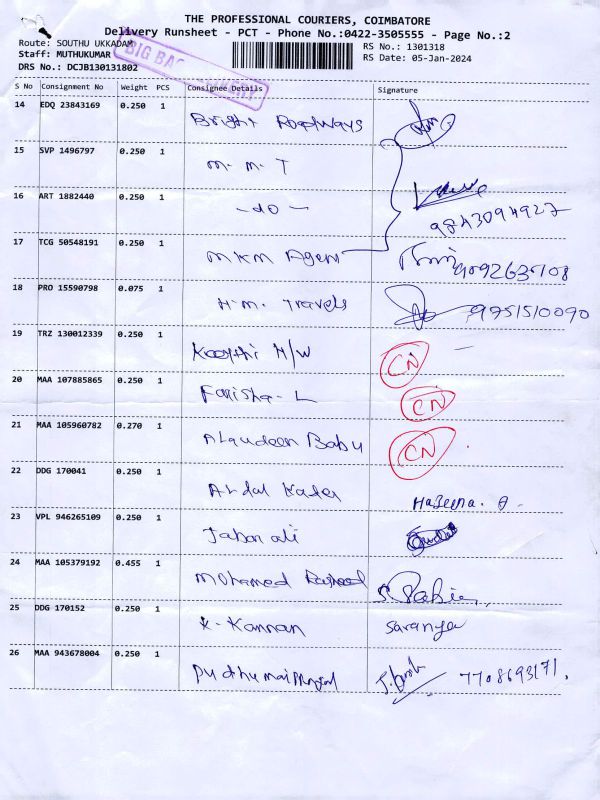 THE PROFESSIONAL COURIERS, COIMBATORE
Delivery Runsheet - PCT - Phone No.:0422-3505555 - Page No.:2
Route: SOUTHU UKKADAM
Staff: MUTHUKUMAR
DRS No.: DCJB130131802
BIG BA
RS No.: 1301318
RS Date: 05-Jan-2024
S No Consignment No Weight PCS Consignee Details Signature
14 EDQ 23843169 0.250 1 Bright Roadways
15 SVP 1496797 0.250 1 M. M. T
16 ART 1882440 0.250 1 - do - 9843094927
17 TCG 50548191 0.250 1 MKM Agent
18 PRO 15590798 0.075 1 H.M. Travels 9751510090
19 TRZ 130012339 0.250 1 H/W CN
20 MAA 107885865 0.250 1 Farisha - L CN
21 MAA 105960782 0.270 1 Alaudeen Babu CN
22 DDG 170041 0.250 1 Abdul Kader Habeena. A.
23 VPL 946265109 0.250 1 Jabar ali
24 MAA 105379192 0.455 1 Mohamed Rasheed
25 DDG 170152 0.250 1 K. Kannan Saranya
26 MAA 943678004 0.250 1 7708693171.